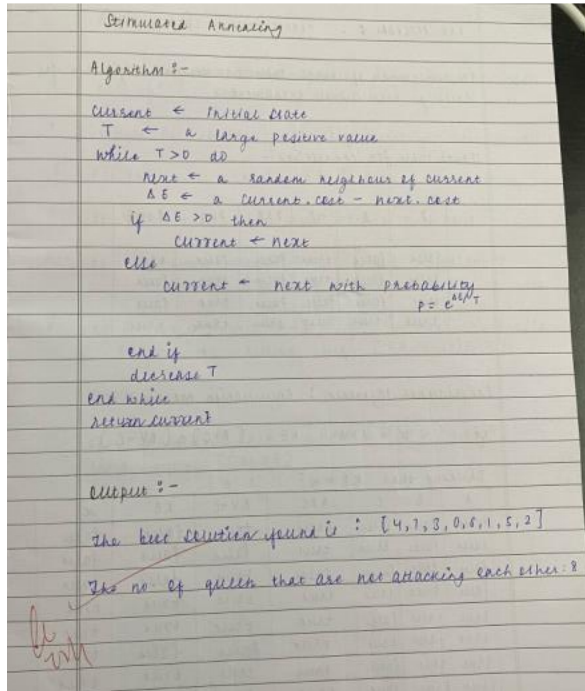 Stimulated Annealing
Algorithm :-
current ← Initial state
T ← a large positive value
while T>0 do
next ← a random neighbour of current
ΔE ← a current.cost - next.cost
if ΔE >0 then
current ← next
else
current ← next with probability
p = e^ΔE/T
end if
decrease T
end while
return current
output :-
The best solution found is : [4,7,3,0,6,1,5,2]
The no of queen that are not attacking each other: 8